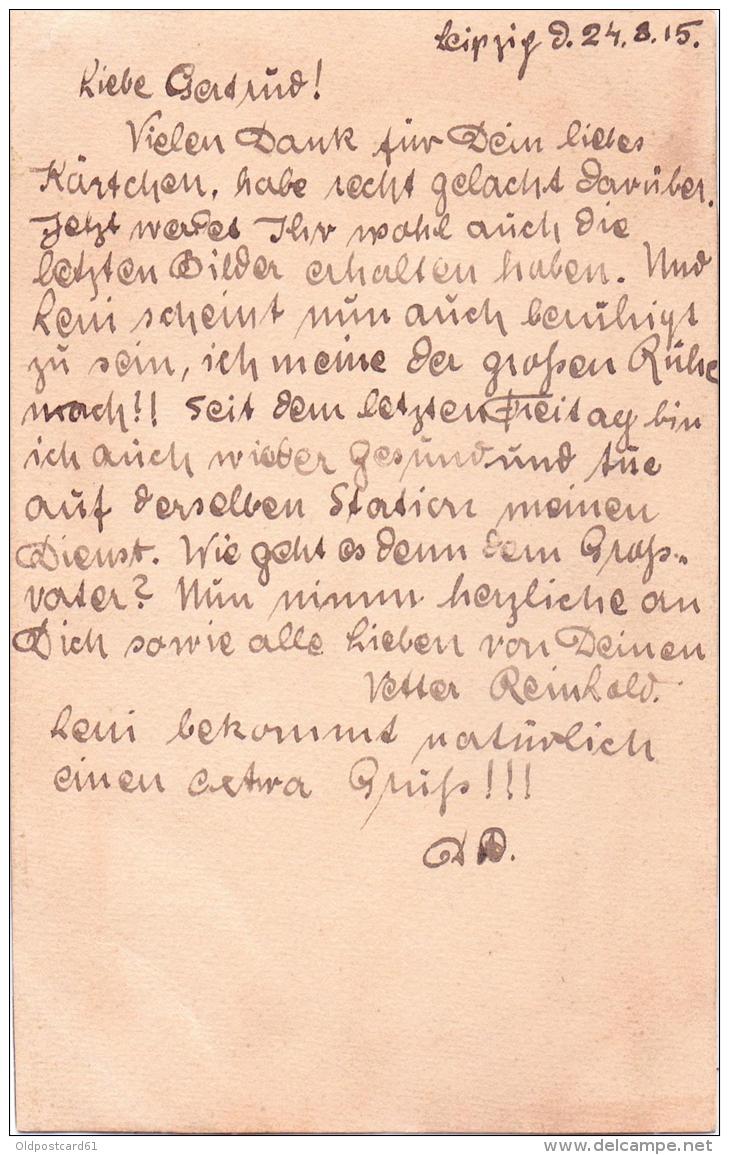 Leipzig d. 24.8.15.
Liebe Gertrud!
Vielen Dank für Dein liebes
Kärtchen, habe recht gelacht darüber.
Jetzt werdet Ihr wohl auch die
letzten Bilder erhalten haben. Und
Leni scheint nun auch beruhigt
zu sein, ich meine der großen Ruhe
nach!! Seit dem letzten Freitag bin
ich auch wieder gesund und tue
auf derselben Station meinen
Dienst. Wie geht es denn dem Groß-
vater? Nun nimm herzliche an
Dich sowie alle Lieben von Deinen
Vetter Reinhold.
Leni bekommt natürlich
einen extra Gruß!!!
Oldpostcard61
delcampe.net